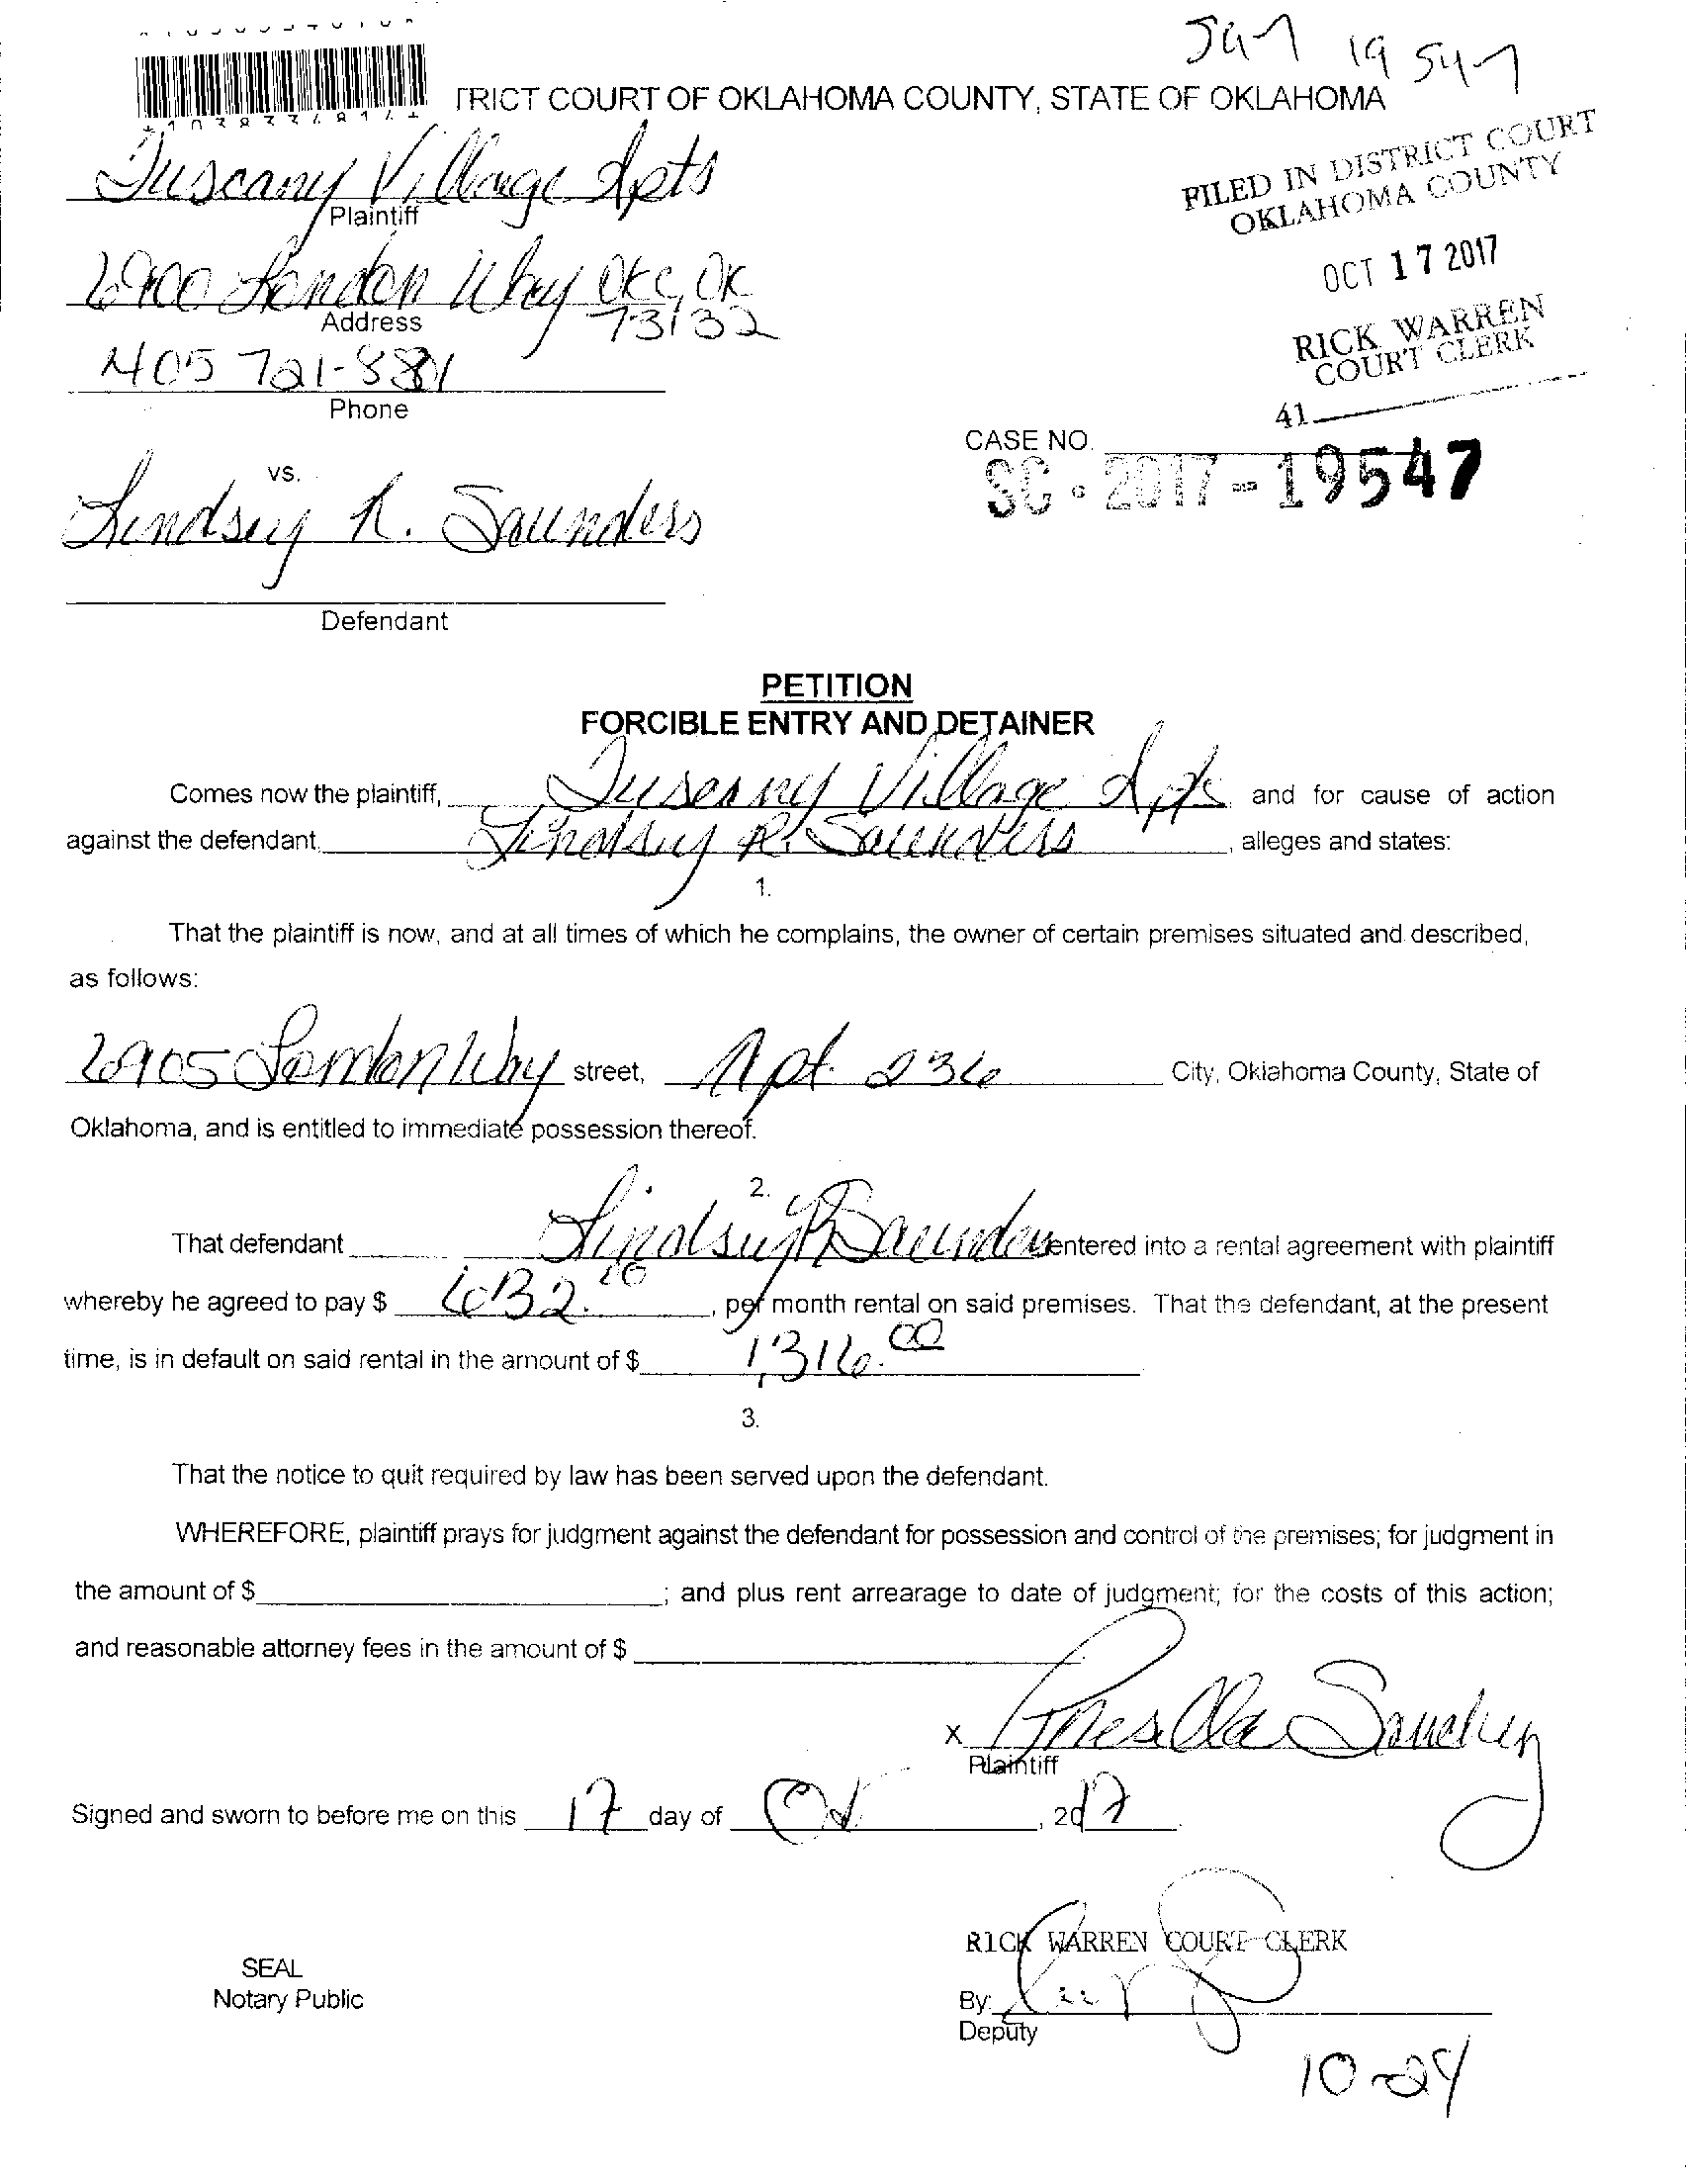 19 547
TRICT COURT OF OKLAHOMA COUNTY, STATE OF OKLAHOMA
Tuscany Village Apts
Plaintiff
FILED IN DISTRICT COURT
OKLAHOMA COUNTY
6900 London Way OKC, OK
73132
Address
OCT 17 2017
RICK WARREN
COURT CLERK
405 721-8881
Phone
41
CASE NO.
SC - 2017 - 19547
vs.
Lindsey R. Saunders
Defendant
PETITION
FORCIBLE ENTRY AND DETAINER
Comes now the plaintiff, Tuscany Village Apts and for cause of action
against the defendant, Lindsey R. Saunders, alleges and states:
1.
That the plaintiff is now, and at all times of which he complains, the owner of certain premises situated and described,
as follows:
6905 London Way street, Apt. 236 City, Oklahoma County, State of
Oklahoma, and is entitled to immediate possession thereof.
2.
That defendant Lindsey R Saunders entered into a rental agreement with plaintiff
whereby he agreed to pay $ , per month rental on said premises. That the defendant, at the present
time, is in default on said rental in the amount of $ 1,316.00
3.
That the notice to quit required by law has been served upon the defendant.
WHEREFORE, plaintiff prays for judgment against the defendant for possession and control of the premises; for judgment in
the amount of $ ; and plus rent arrearage to date of judgment; for the costs of this action;
and reasonable attorney fees in the amount of $
X
Plaintiff
Signed and sworn to before me on this 17 day of Oct, 2017
RICK WARREN COURT CLERK
SEAL
Notary Public
By:
Deputy
10-24